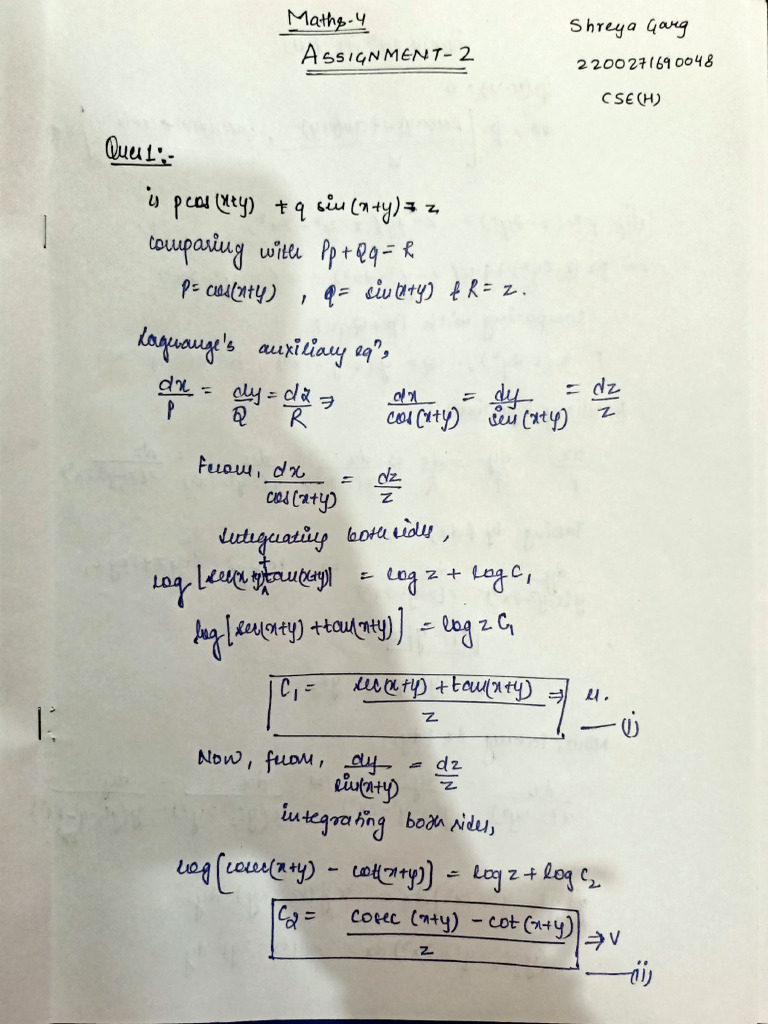 Maths-4
ASSIGNMENT-2
Shreya Garg
2200271690048
CSE(H)
Ques 1:-
i) p cos(x+y) + q sin(x+y) = z
comparing with Pp + Qq = R
P = cos(x+y) , Q = sin(x+y) & R = z.
Lagrange's auxiliary eqⁿ,
dx/P = dy/Q = dz/R ⇒ dx/cos(x+y) = dy/sin(x+y) = dz/z
From, dx/cos(x+y) = dz/z
Integrating both sides,
log [sec(x+y)+tan(x+y)] = log z + log C₁
log [sec(x+y) + tan(x+y)] = log z C₁
C₁ = sec(x+y) + tan(x+y)/z ⇒ u. —(i)
Now, from, dy/sin(x+y) = dz/z
integrating both sides,
log [cosec(x+y) - cot(x+y)] = log z + log C₂
C₂ = cosec (x+y) - cot (x+y)/z ⇒ V —(ii)